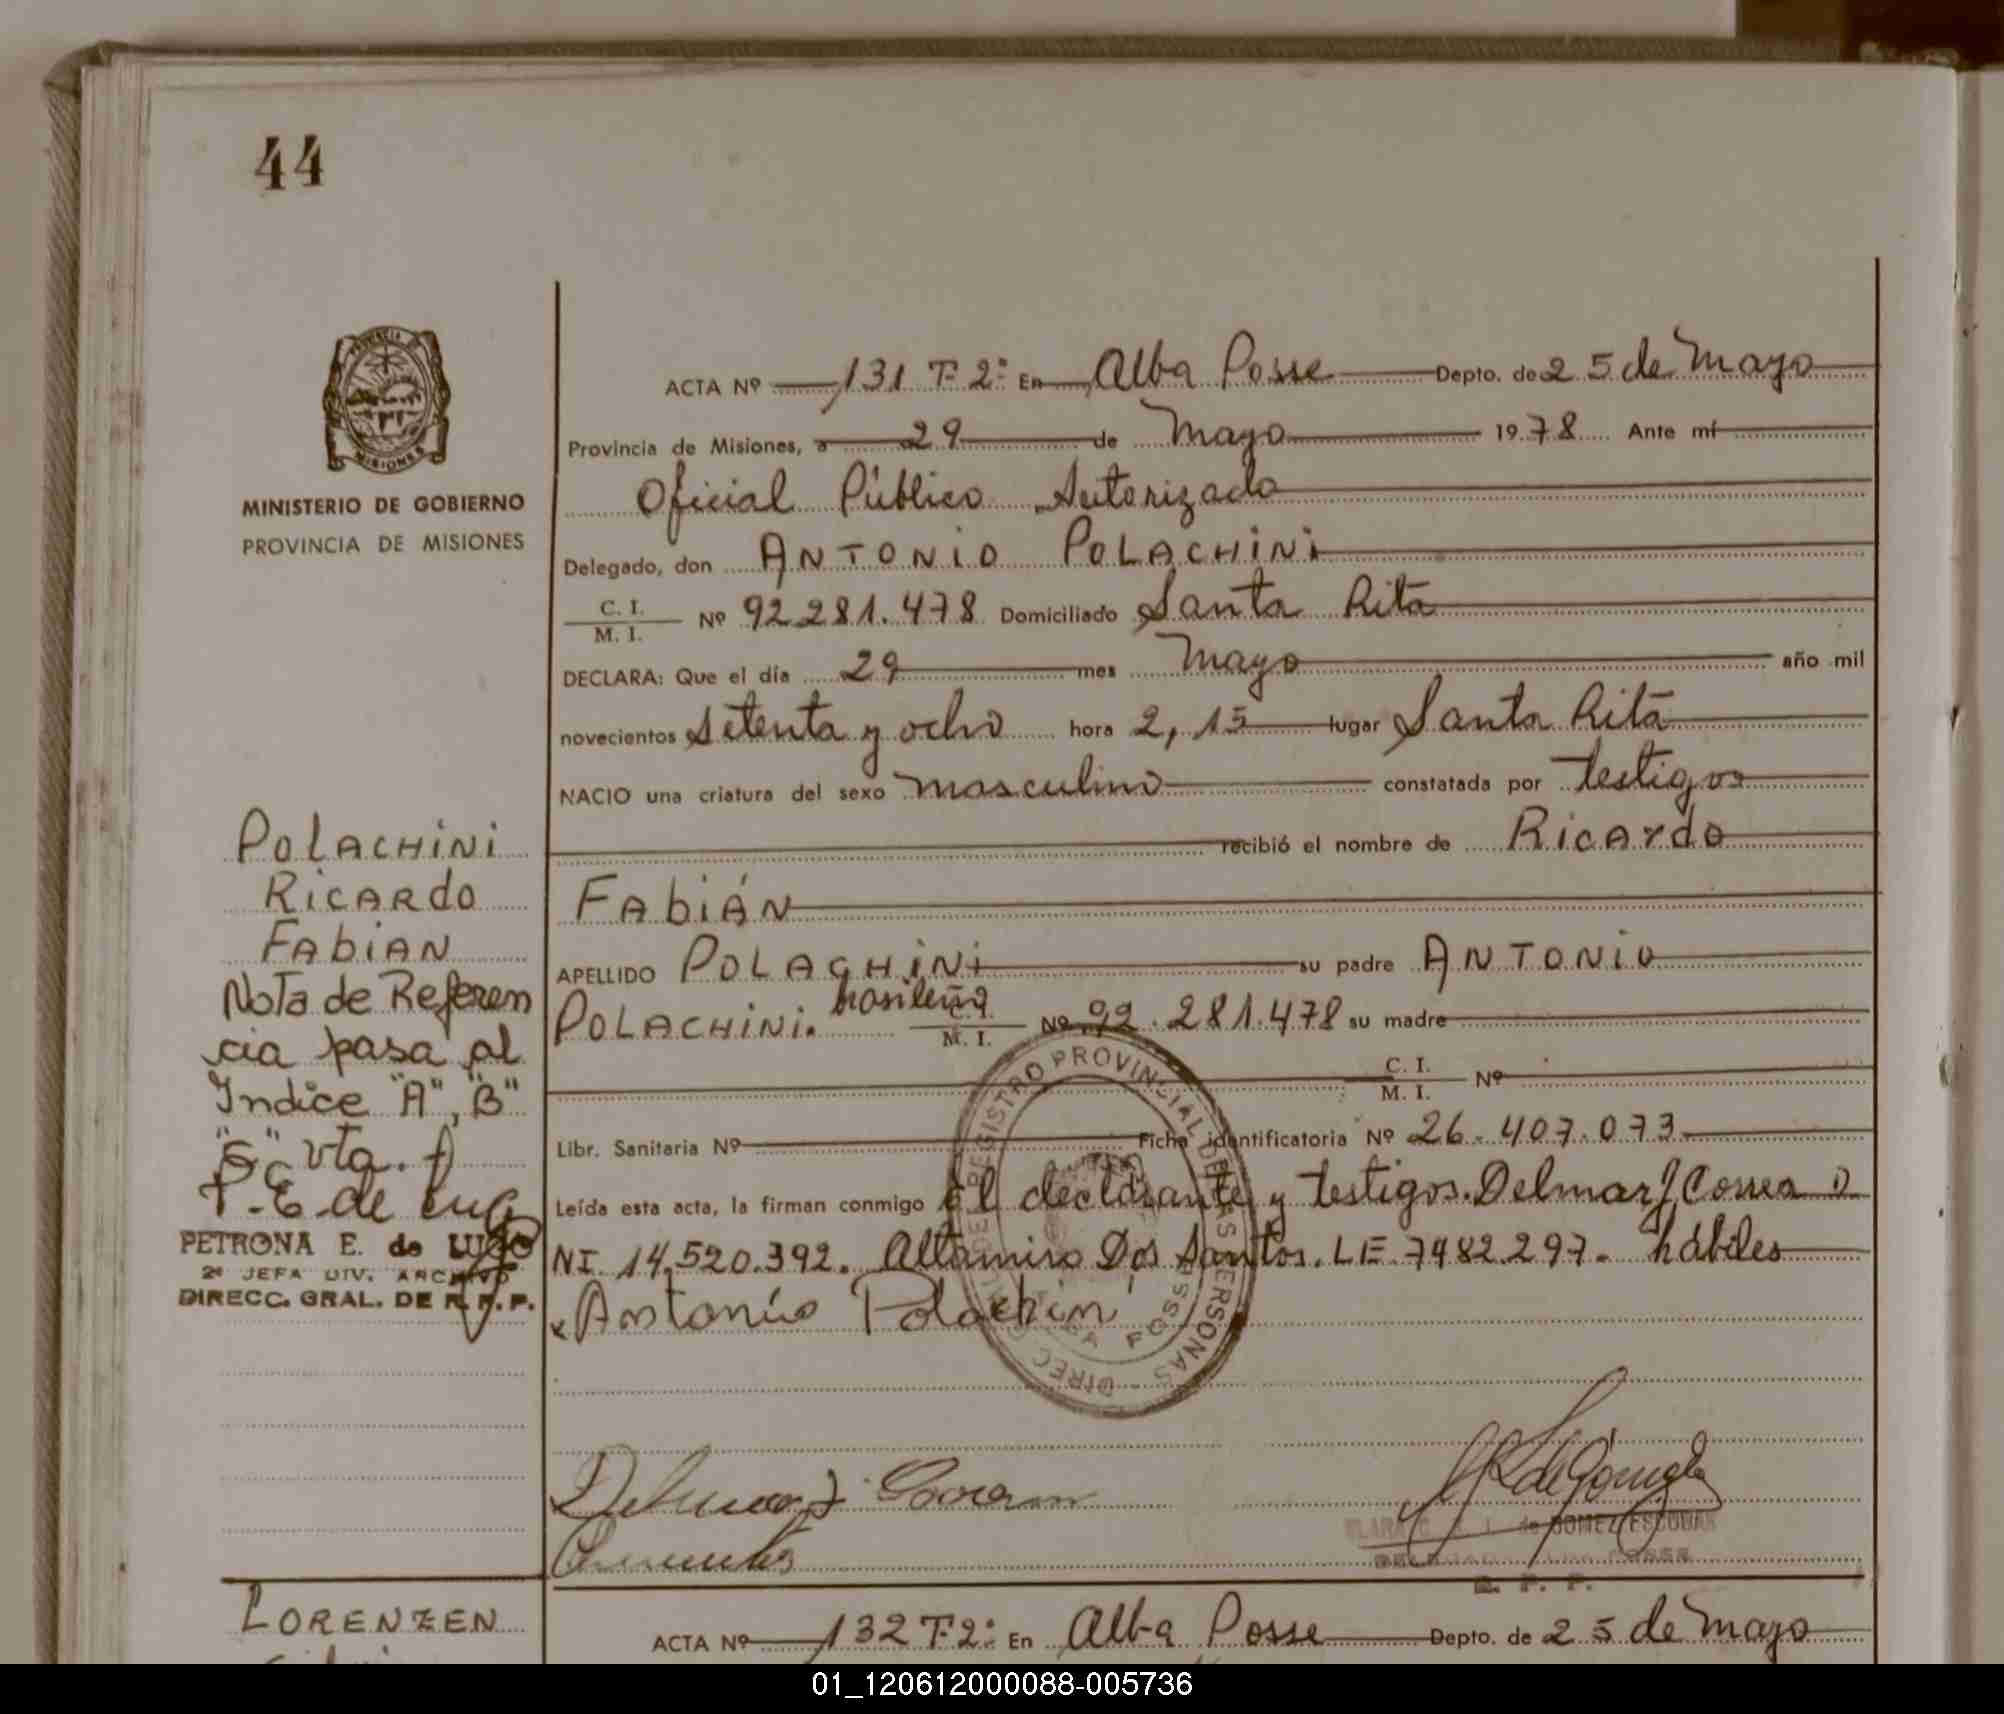 44
MINISTERIO DE GOBIERNO
PROVINCIA DE MISIONES
ACTA Nº 131 T-2º En Alba Posse Depto. de 25 de Mayo
Provincia de Misiones, a 29 de Mayo 1978 Ante mí
Oficial Público Autorizado
Delegado, don ANTONIO POLACHINI
C. I. / M. I. Nº 92.281.478 Domiciliado Santa Rita
DECLARA: Que el día 29 mes Mayo año mil
novecientos setenta y ocho hora 2,15 lugar Santa Rita
NACIO una criatura del sexo masculino constatada por testigos
recibió el nombre de Ricardo
Fabián
APELLIDO POLACHINI su padre ANTONIO
POLACHINI. brasileña C. I. / M. I. Nº 92.281.478 su madre
C. I. / M. I. Nº
Libr. Sanitaria Nº Ficha identificatoria Nº 26.407.073
Leída esta acta, la firman conmigo el declarante y testigos. Delmar J Correa D
NI. 14.520.392. Altamiro Dos Santos. LE. 7482.297- hábiles
x Antonio Polachini
POLACHINI
RICARDO
FABIAN
Nota de Referen
cia pasa al
Indice "A", "B"
"C" vta.
P. E de Lugo
PETRONA E. de LUGO
2ª JEFA DIV. ARCHIVO
DIRECC. GRAL. DE R. P. P.
REGISTRO PROVINCIAL DE LAS PERSONAS
DIREC
ALBA POSSE
Delmar J Correa
de GOMEZ ESCOBAR
R. P. P.
LORENZEN
ACTA Nº 132 T-2º En Alba Posse Depto. de 25 de Mayo
01_120612000088-005736